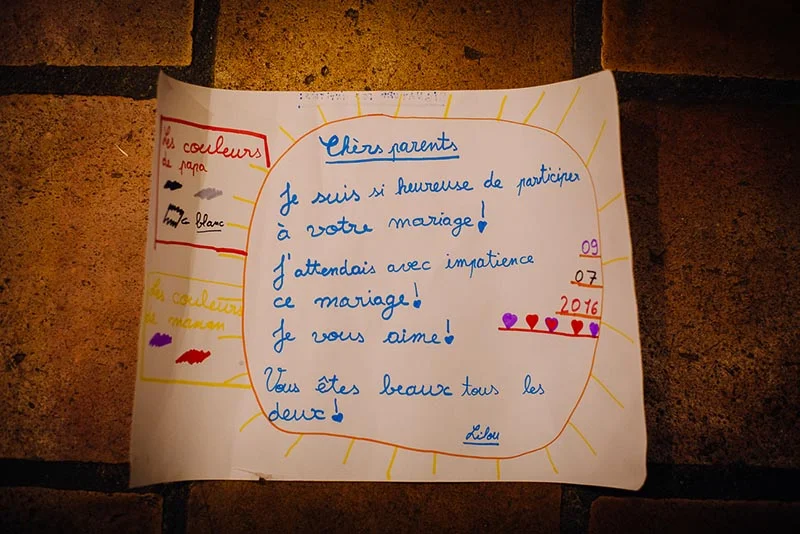 Les couleurs
de papa
blanc
Les couleurs
de maman
Chèrs parents
Je suis si heureuse de participer
à votre mariage!
J'attendais avec impatience
ce mariage!
Je vous aime!
Vous êtes beaux tous les
deux!
Lilou
09
07
2016